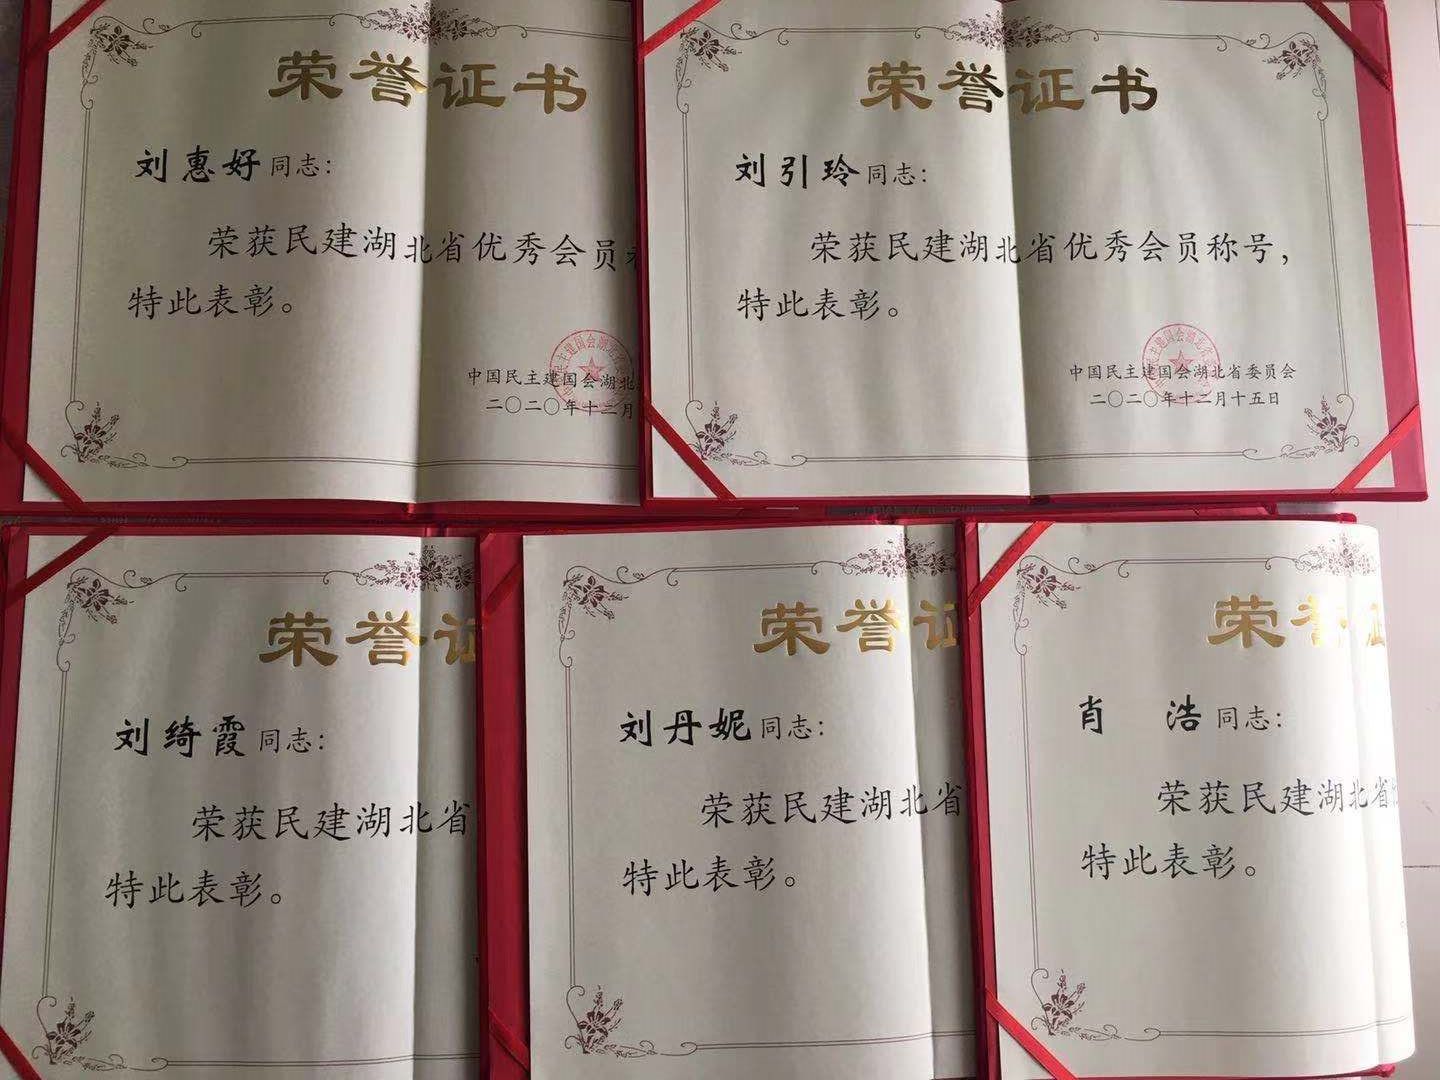 荣誉证书
刘惠好同志：
荣获民建湖北省优秀会员
特此表彰。
中国民主建国会湖北
二〇二〇年十二月
荣誉证书
刘引玲同志：
荣获民建湖北省优秀会员称号，
特此表彰。
中国民主建国会湖北省委员会
二〇二〇年十二月十五日
荣誉证
刘绮霞同志：
荣获民建湖北省
特此表彰。
荣誉证
刘丹妮同志：
荣获民建湖北省
特此表彰。
荣誉证
肖 浩同志：
荣获民建湖北省
特此表彰。